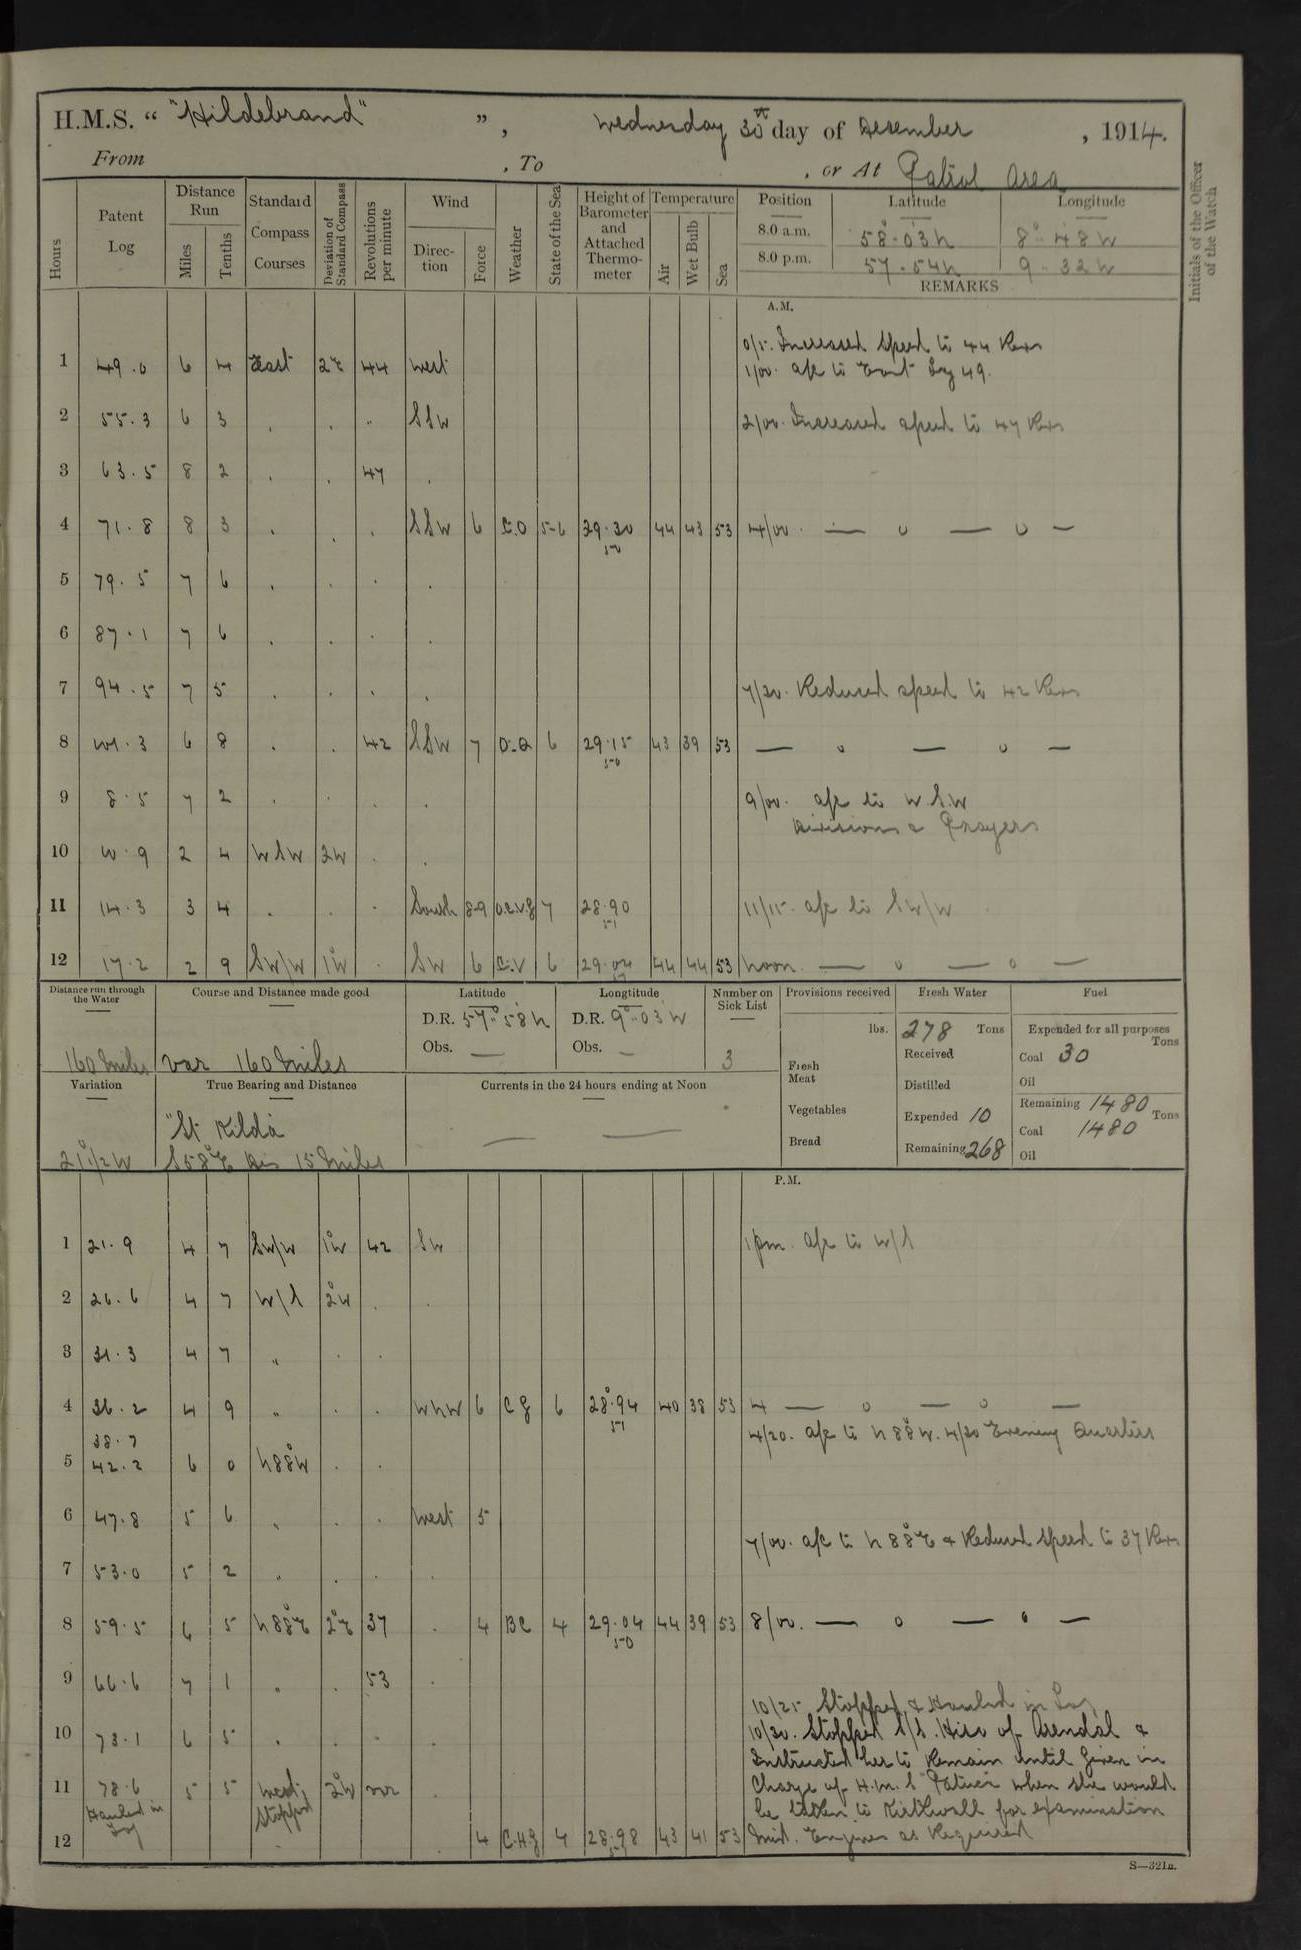 H.M.S. " "Hildebrand" ", Wednesday 30th day of December, 1914.
From , To , or At Patrol Area
Hours
Patent Log
Distance Run
Miles
Tenths
Standard Compass Courses
Deviation of Standard Compass
Revolutions per minute
Wind
Direction
Force
Weather
State of the Sea
Height of Barometer and Attached Thermometer
Temperature
Air
Wet Bulb
Sea
Position Latitude Longitude
8.0 a.m. 58°.03N 8°.48W
8.0 p.m. 57.54N 9.32W
REMARKS
Initials of the Officer of the Watch
A.M.
0/5. Increased Speed to 44 Revs
1 49.0 6 4 East 2E 44 West 1/00. a/c to East Log 49.
2 55.3 6 3 . . " SSW 2/00. Increased speed to 47 Revs
3 63.5 8 2 . . 47 .
4 71.8 8 3 . . . SSW 6 C.O 5-6 29.30 44 43 53 4/00. — o — o —
50
5 79.5 7 6 . . . .
6 87.1 7 6 . . . .
7 94.5 7 5 . . . . 7/30. Reduced speed to 42 Revs
8 01.3 6 8 . . 42 SSW 7 O.Q 6 29.15 43 39 53 — o — o —
50
9 8.5 7 2 . . . . 9/00. a/c to W.S.W
Divisions & Prayers
10 10.9 2 4 WSW 2W . .
11 14.3 3 4 . . . South 8-9 7 28.90 11/15. a/c to SW/W
51
12 17.2 2 9 SW/W 1°W . SW 6 C.V 6 29.04 44 44 53 Noon. — o — o —
Distance run through the Water
Course and Distance made good
Latitude
Longtitude
Number on Sick List
Provisions received
Fresh Water
Fuel
160 Miles
Var 160 Miles
D.R. 57°.58N
D.R. 9°.03W
Obs. —
Obs. —
3
lbs.
Fresh Meat
Vegetables
Bread
278 Tons
Received
Distilled
Expended 10
Remaining 268
Expended for all purposes Tons
Coal 30
Oil
Remaining 1480 Tons
Coal 1480
Oil
Variation
True Bearing and Distance
Currents in the 24 hours ending at Noon
21°1/2W
"St Kilda
S58°E Dis 15 Miles
P.M.
1 21.9 4 7 SW/W 1°W 42 SW 1pm. a/c to W/S
2 26.6 4 7 W/S 2°W . .
3 31.3 4 7 " . .
4 36.2 4 9 " . . WNW 6 C g 6 28.94 40 38 53 4 — o — o —
51
38.7 4/20. a/c to N88°W. 4/30 Evening Quarters
5 42.2 6 0 N88°W . .
6 47.8 5 6 . . . West 5
7/00. a/c to N88°E & Reduced Speed to 37 Revs
7 53.0 5 2 . . . .
8 59.5 6 5 N88°E 2°E 37 . 4 BC 4 29.04 44 39 53 8/00. — o — o —
50
9 66.6 7 1 " . 53 .
10/25 Stopped & Hauled in Log
10 73.1 6 5 . . . . 10/30. Stopped S/S. of Arendal &
Instructed her to Remain until given in
11 78.6 5 5 West, 2°W . Charge of H.M.S "Patuca" when she would
Hauled in Log Stopped be taken to Kirkwall for examination
12 4 4 28.98 43 41 53 Mid. Engines as Required
S—321a.